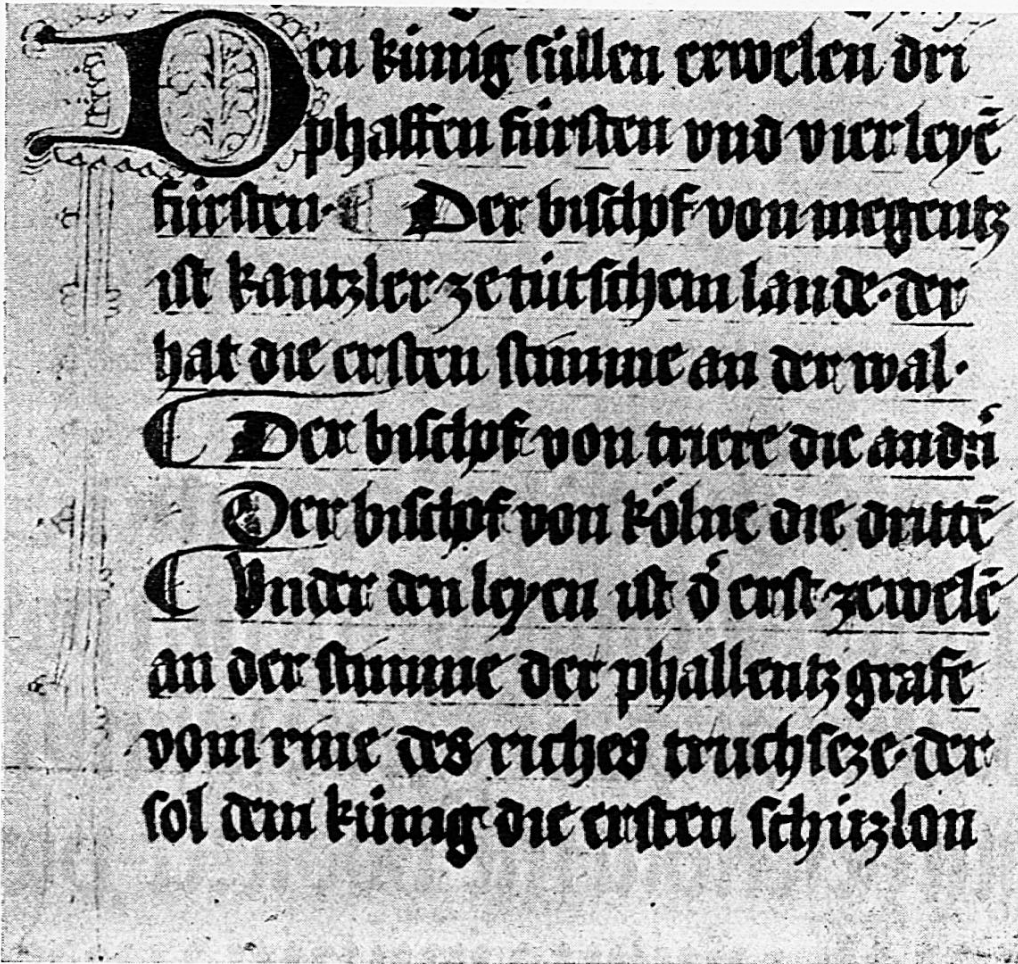 Den kúnig súllen erwelen dri
phaffen fúrsten vnd vier leyē
fúrsten· Der bischof von megentz
ist kantzler ze tútschem lande· der
hat die ersten stimme an der wal·
Der bischof von triere die andň
Der bischof von kölne die drittē
Vnder den leyen ist d̛ erst ze welē
an der stimme der phallentz grafe
vom rine des riches truchseze· der
sol dem kúnig die ersten schúzlon